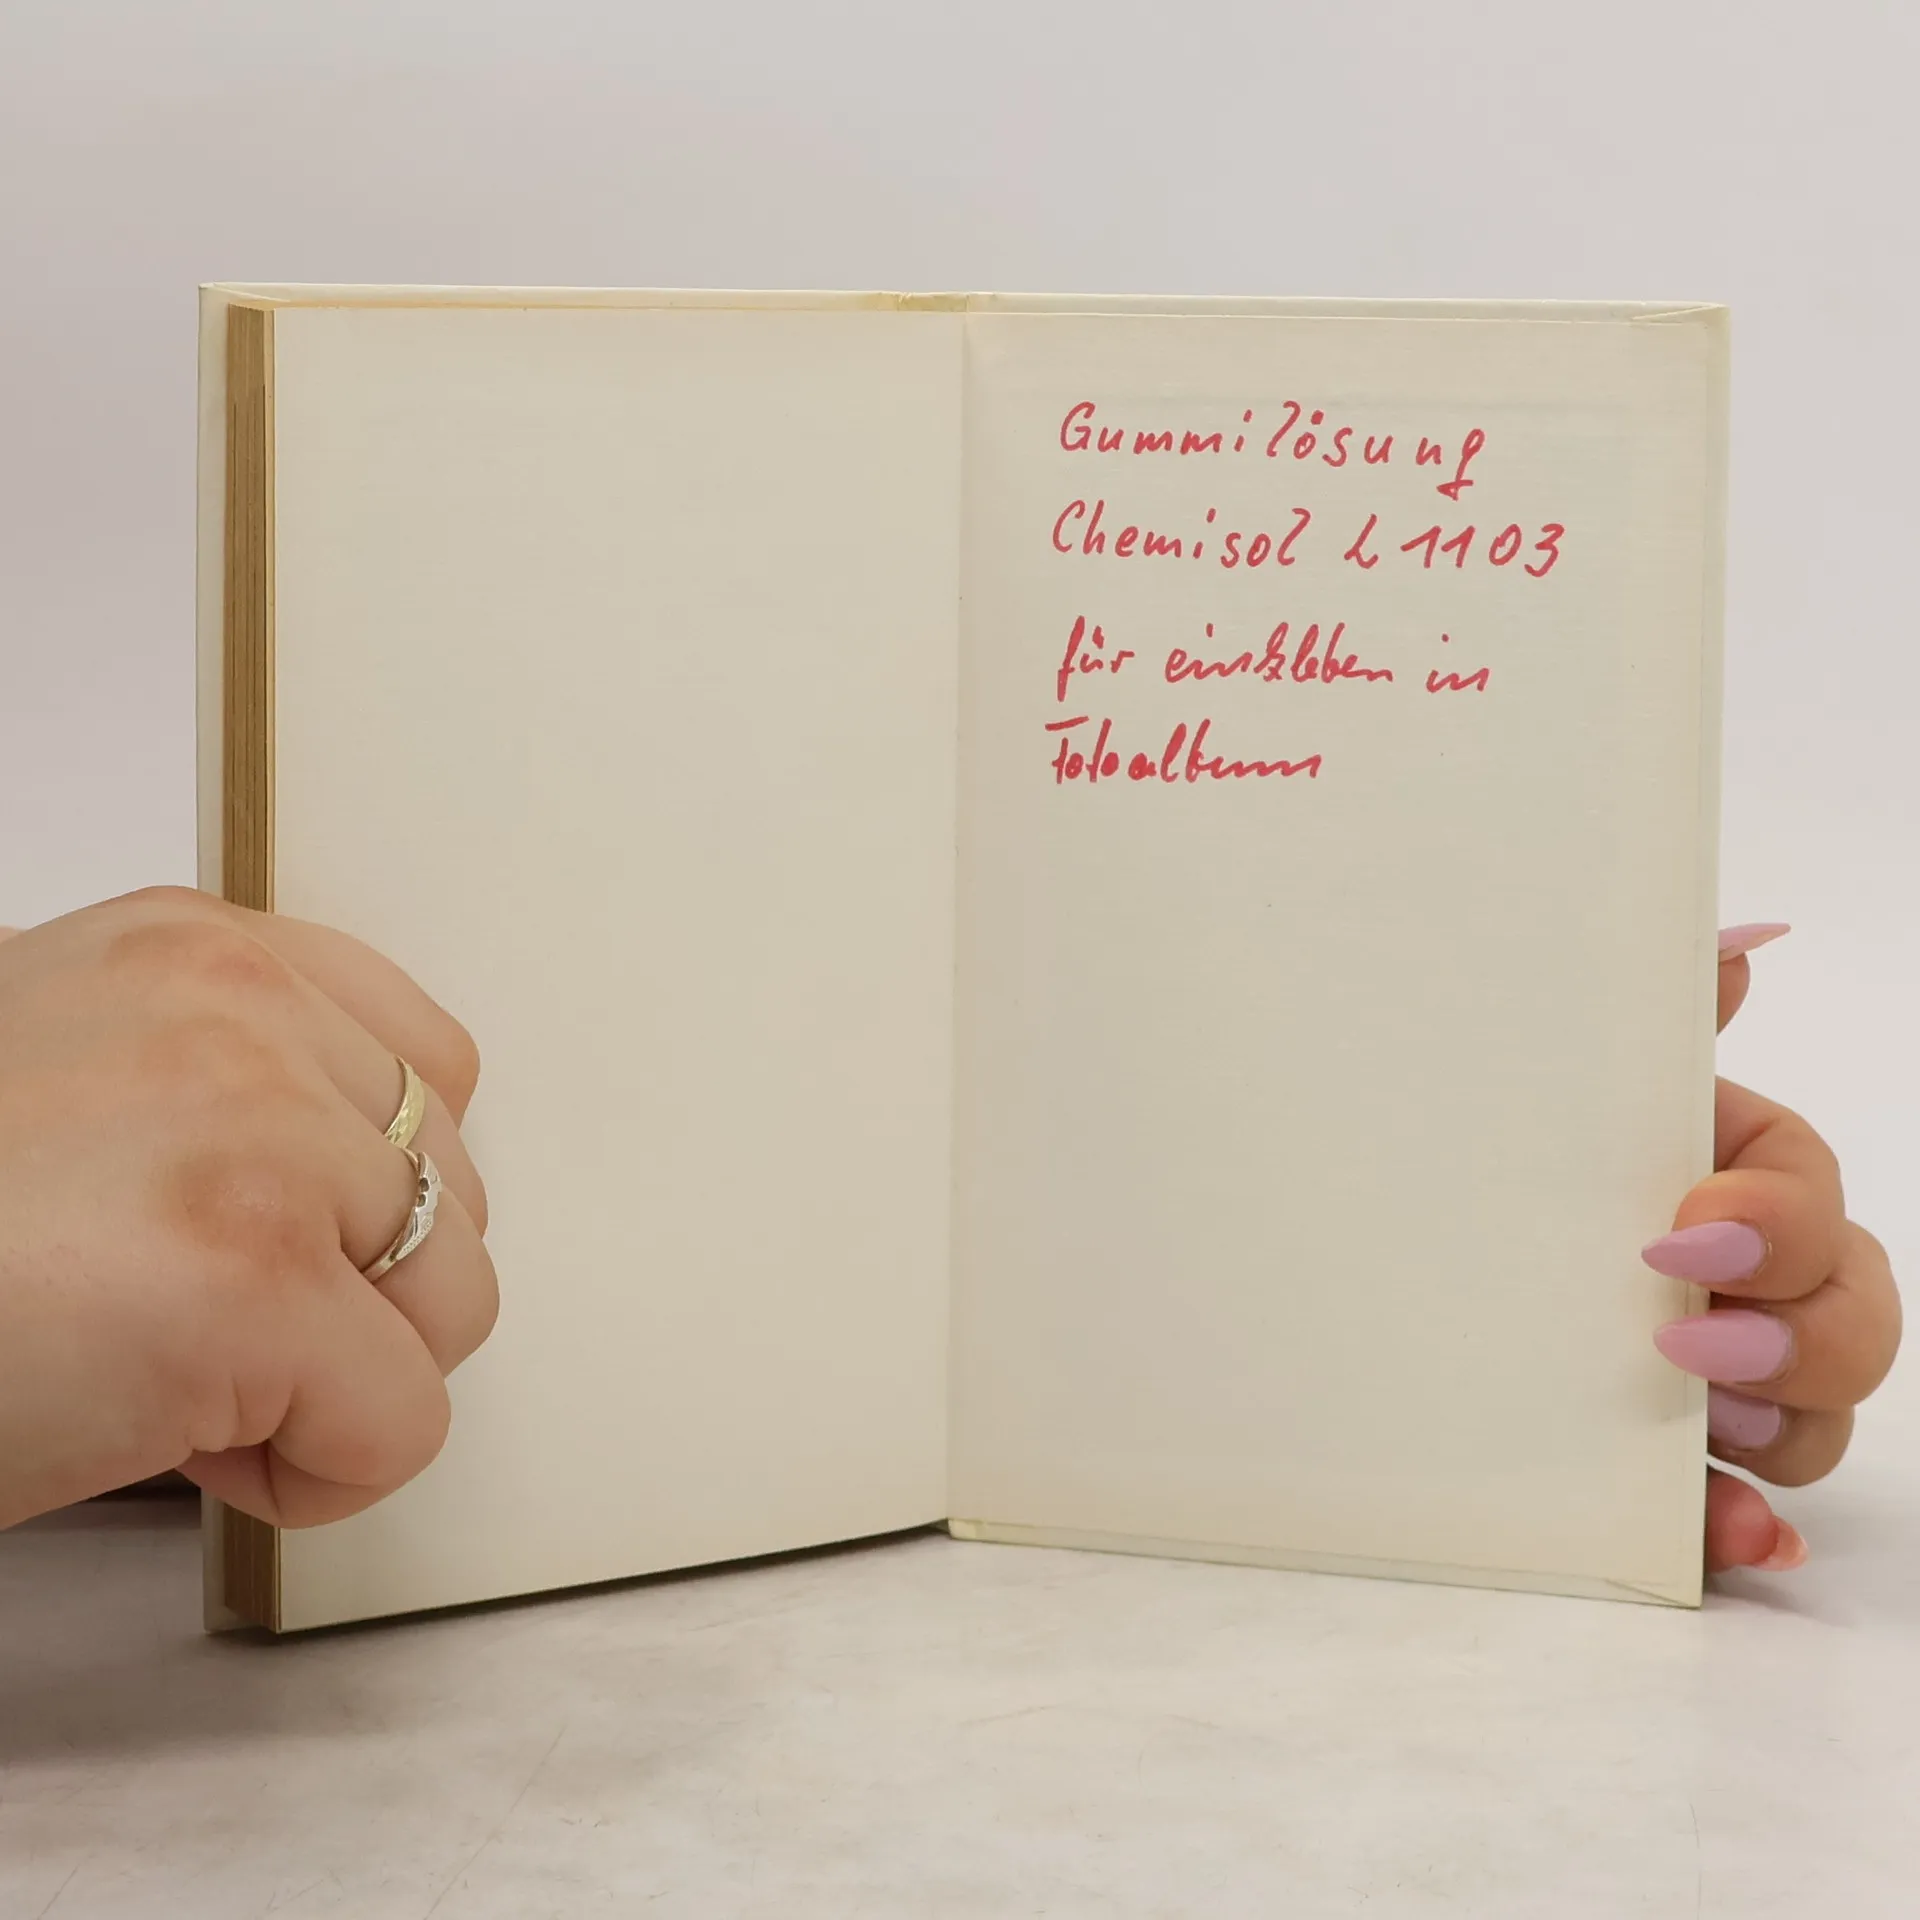 Gummilösung
Chemisol L 1103
für einkleben in
Fotoalbum